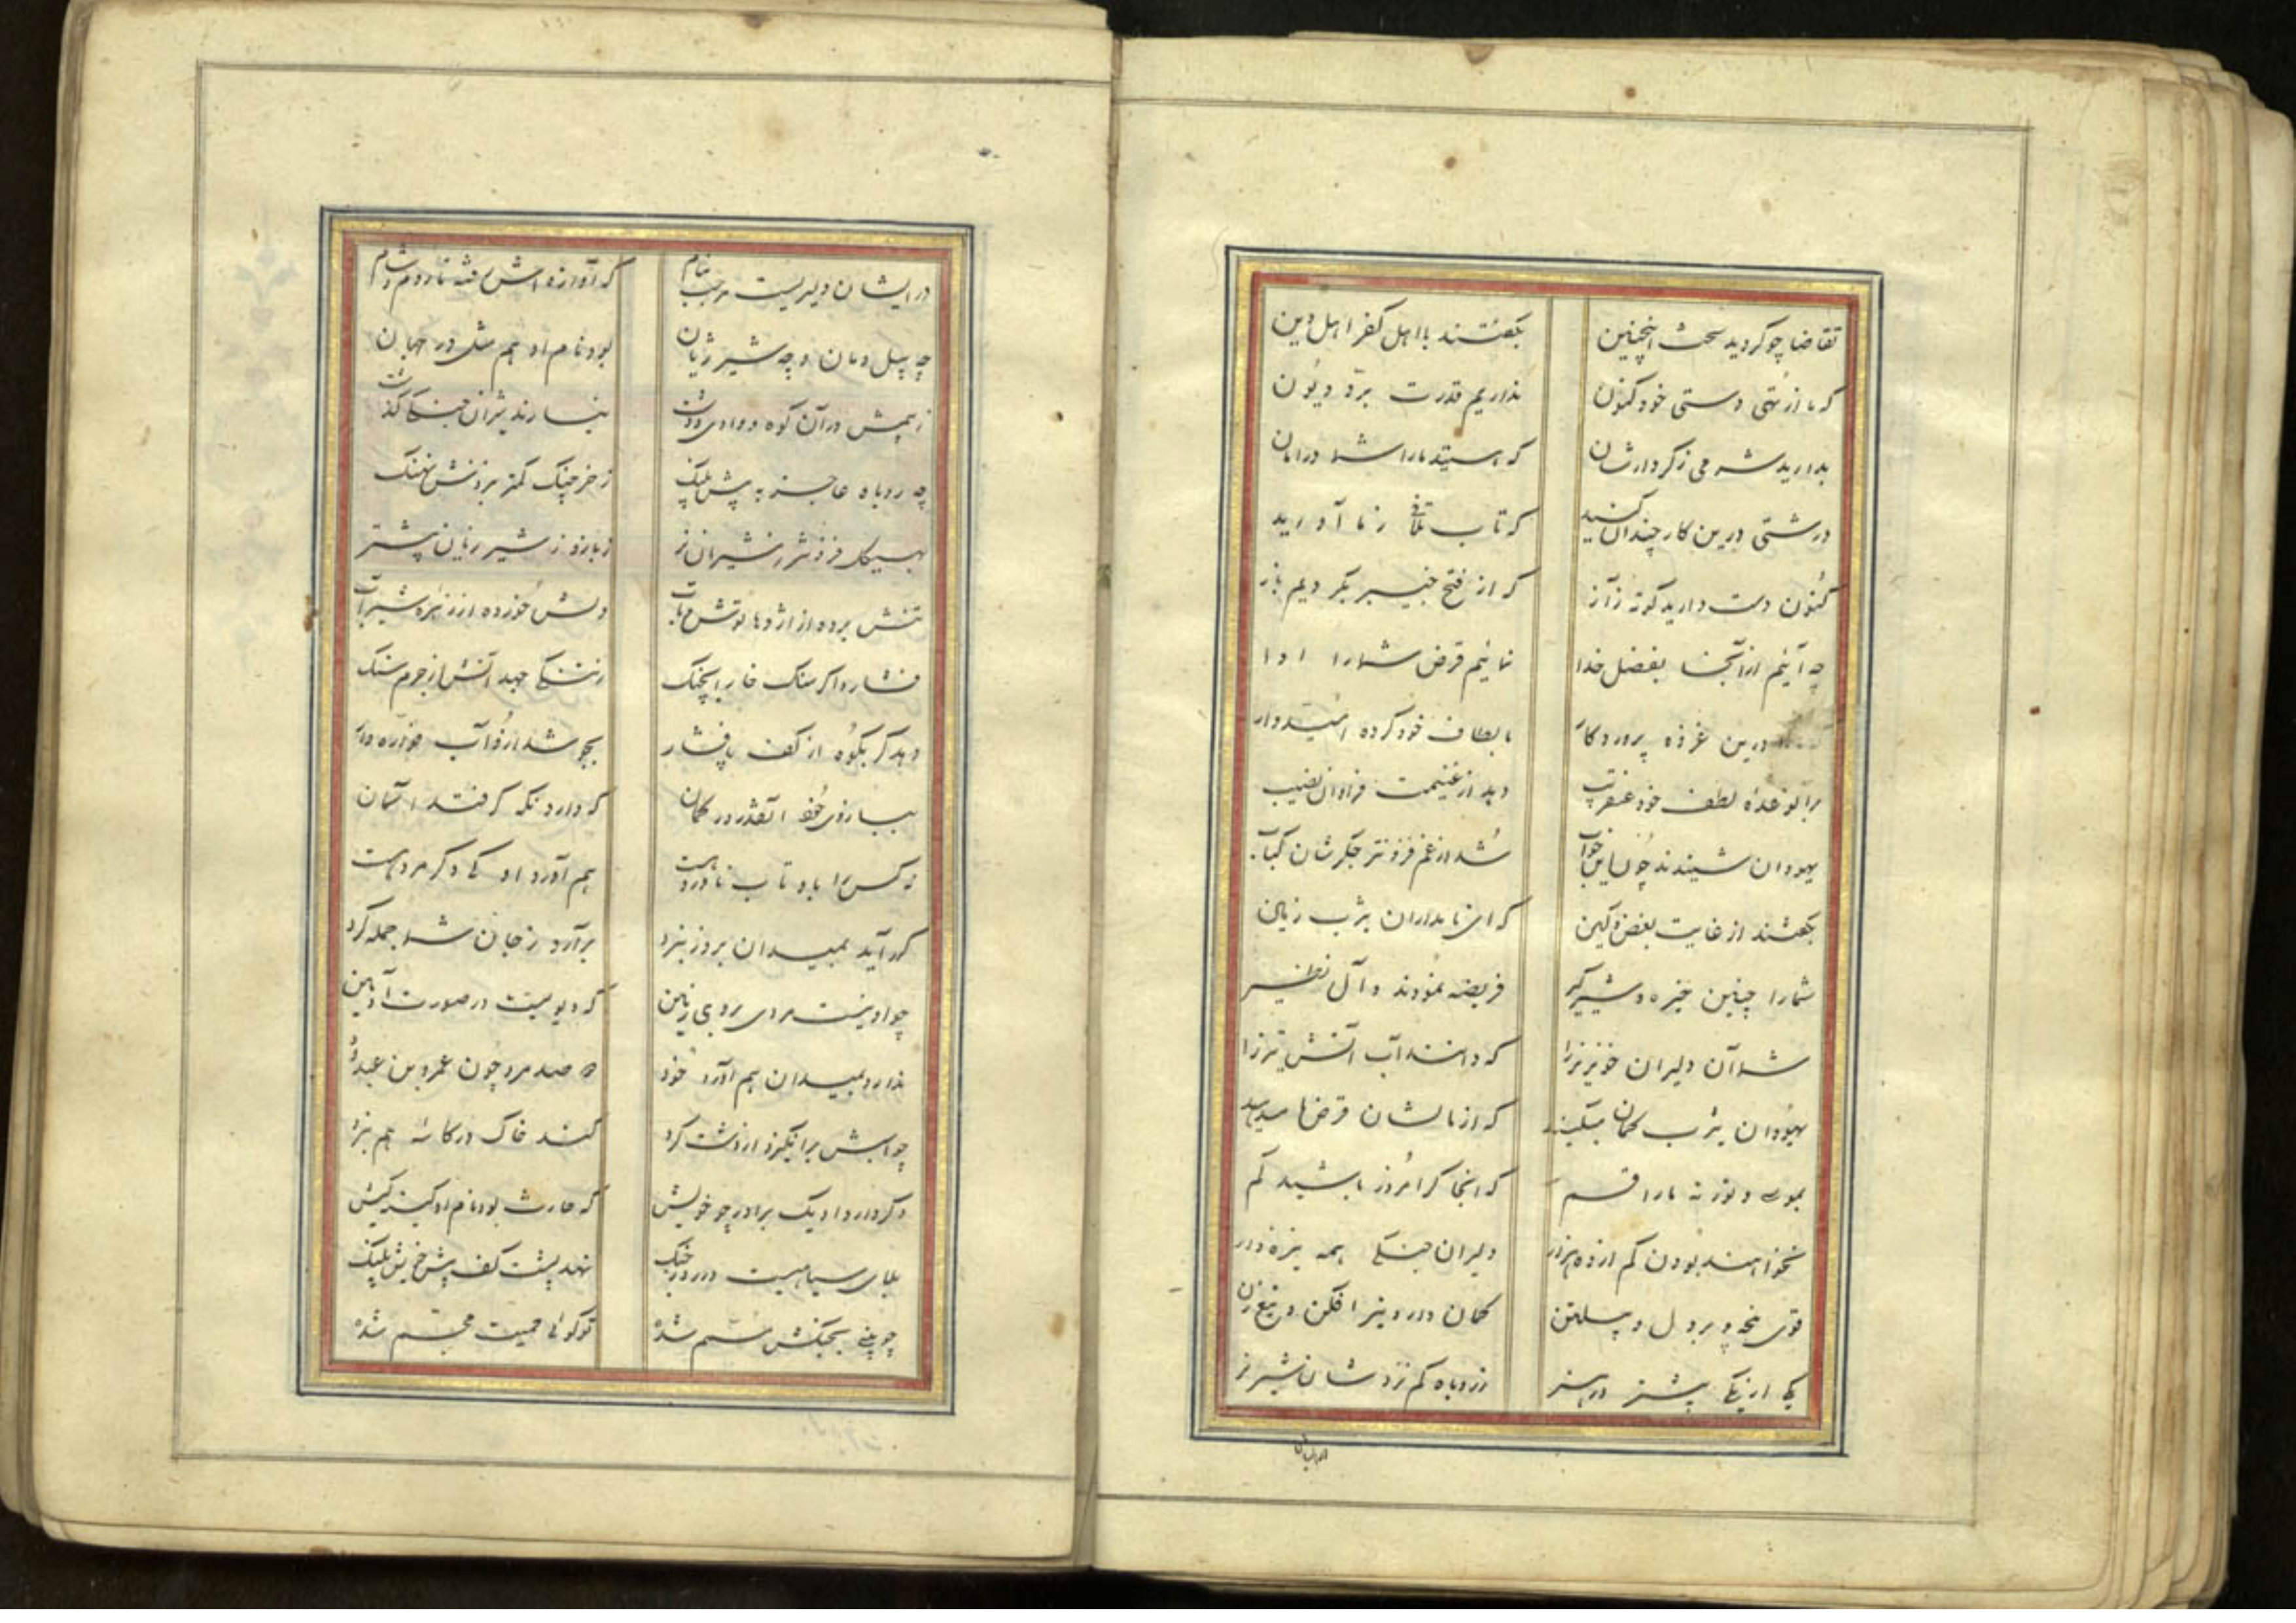 تقاضا چو کردید سخت اینچنین بگفتند با اهل کفر اهل دین
که ما از تهی دستی خود کنون نداریم قدرت برد دیون
بدارید شرمی ز کردارشان که هستید ما را شما در امان
درشتی درین کار چندان کنید که تاب تلافی ز ما آورید
کنون دست دارید کوته ز آز که از فتح خیبر بگردیم باز
چه آئیم از آنجا بفضل خدا نمائیم قرض شما را ادا
درین غزوه پروردگار بالطاف خود کرده امیدوار
برآن وعدۀ لطف خود عنقریب دهد از غنیمت فراوان نصیب
یهودان شنیدند چون این جواب شد از غم فزونتر جگرشان کباب
بگفتند از غایت بغض و کین که این نامداران یثرب زمین
شما را چنین خیره و شیرگیر فریضه نمودند و آل نظیر
شما آن دلیران خونریز را که دانند آب آتش تیز را
یهودان یثرب گمان میکنید که از مالشان قرضها میدهید
بموسی و توریة ما را قسم که اینجا گر امروز باشید کم
نخواهند بودن کم از ده هزار دلیران جنگی همه نیزه دار
قوی پنجه و پر دل و پیلتن کمان دور و نیز افکن و تیغ زن
یکی از یکی بیشتر در هنر ز روباه کم نزدشان شیر نر
در ایشان دلیریست مرحب بنام که آوازه اش رفته تا روم و شام
چه پیل دمان و چه شیر ژیان بود نام او هم مثل در جهان
ز بیمش در آن کوه و وادی و دشت نیارند شیران جنگی گذشت
چه روباه عاجز به پیشش پلنگ ز خرچنگ کمتر بر ذنش نهنگ
بهیکل فزونتر ز شیران نر ز بازو ز شیر ژیان بیشتر
تنش برده از اژدها توش و تاب دلش خورده از زهره شیر آب
فشارد اگر سنگ خارا بچنگ ز تنگی جهد آتش از جرم سنگ
دهد گر بکوه از کف پا فشار
ببازوی خود آنقدر در کمان که دارد نگه گر فتد آسمان
نه کس را باو تاب ناورد هست هم آورد او کی دگر مرد هست
گر آید بمیدان بروز نبرد برآرد ز جان شما جمله گرد
چو او نیست مردی بروی زمین که دیویست در صورت آدمین
ندارد بمیدان هم آورد خود صد مرد چون عمرو بن عبدود
چو اسبش برانگیزد از دشت گرد کند خاک در کاسۀ هم نبرد
دگر دارد او یک برادر چو خویش که حارث بود نام او کینه کیش
بلای سیاهیست در روز جنگ نهد پشت کف پیش خویش پلنگ
چو بینی بجنگش مسم شده تو گوئی حمیت مجسم شده